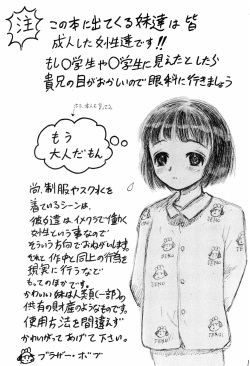 注
この本に出てくる妹達は皆
成人した女性達です!!
もし〇学生や〇学生に見えたとしたら
貴兄の目がおかしいので眼科に行きましょう
もう
大人だもん
尚、制服やスク水を
着ているシーンは、
彼女達はイメクラで働く
女性という事なので
そういう方向でおねがいします。
それと作中と同上の行為を
現実に行うなど
もってのほかです。
かわいい妹は人類(一部)の
共有の財産のようなものです。
使用方法を間違えず
かわいがってあげて下さい。
ブラザー・ボブ